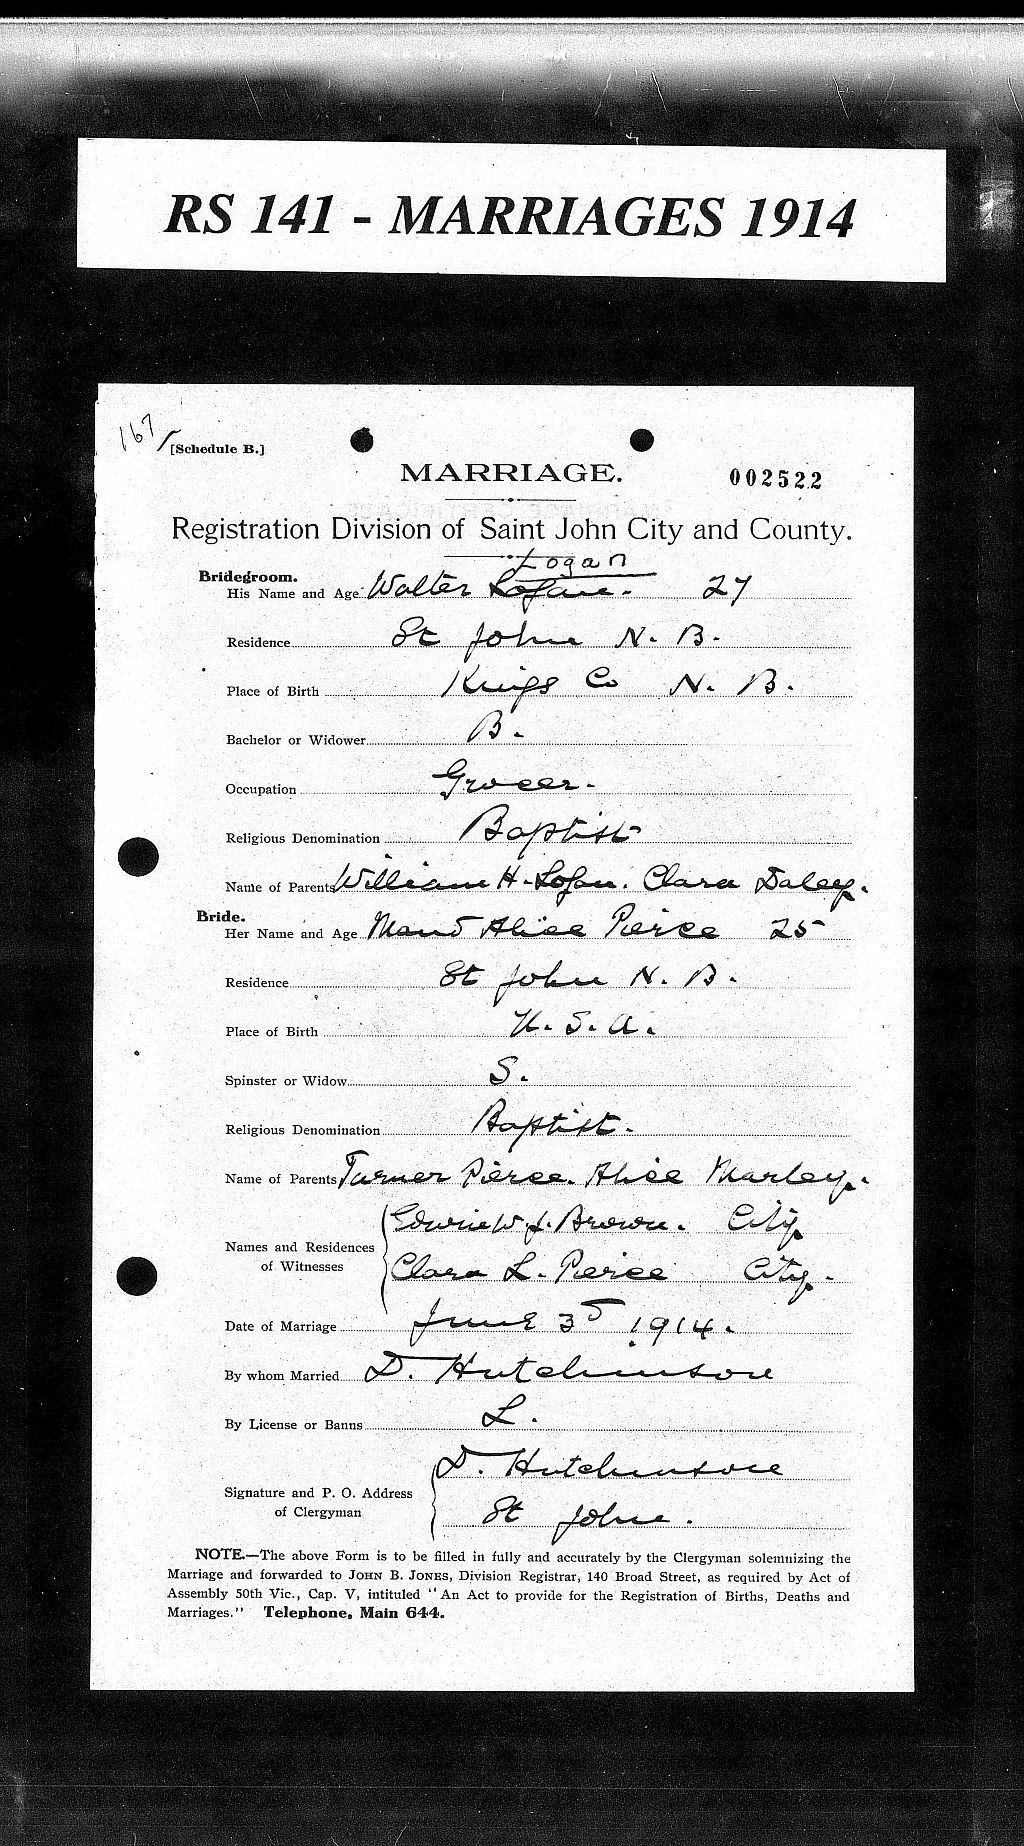 RS 141 - MARRIAGES 1914
167
[Schedule B.]
MARRIAGE.
002522
Registration Division of Saint John City and County.
Logan
Bridegroom.
His Name and Age Walter Logan. 27
Residence St John N. B.
Place of Birth Kings Co N. B.
Bachelor or Widower B.
Occupation Grocer.
Religious Denomination Baptist
Name of Parents William H. Logan. Clara Daley.
Bride.
Her Name and Age Maud Alice Pierce 25
Residence St John N. B.
Place of Birth U. S. A.
Spinster or Widow S.
Religious Denomination Baptist.
Name of Parents Turner Pierce. Alice Marley.
Edwin W. J. Brown. City
Names and Residences
of Witnesses
Clara L. Pierce City.
Date of Marriage June 3d 1914.
By whom Married D. Hutchinson
By License or Banns L.
D. Hutchinson
Signature and P. O. Address
of Clergyman
St John.
NOTE.—The above Form is to be filled in fully and accurately by the Clergyman solemnizing the
Marriage and forwarded to JOHN B. JONES, Division Registrar, 140 Broad Street, as required by Act of
Assembly 50th Vic., Cap. V, intituled "An Act to provide for the Registration of Births, Deaths and
Marriages." Telephone, Main 644.